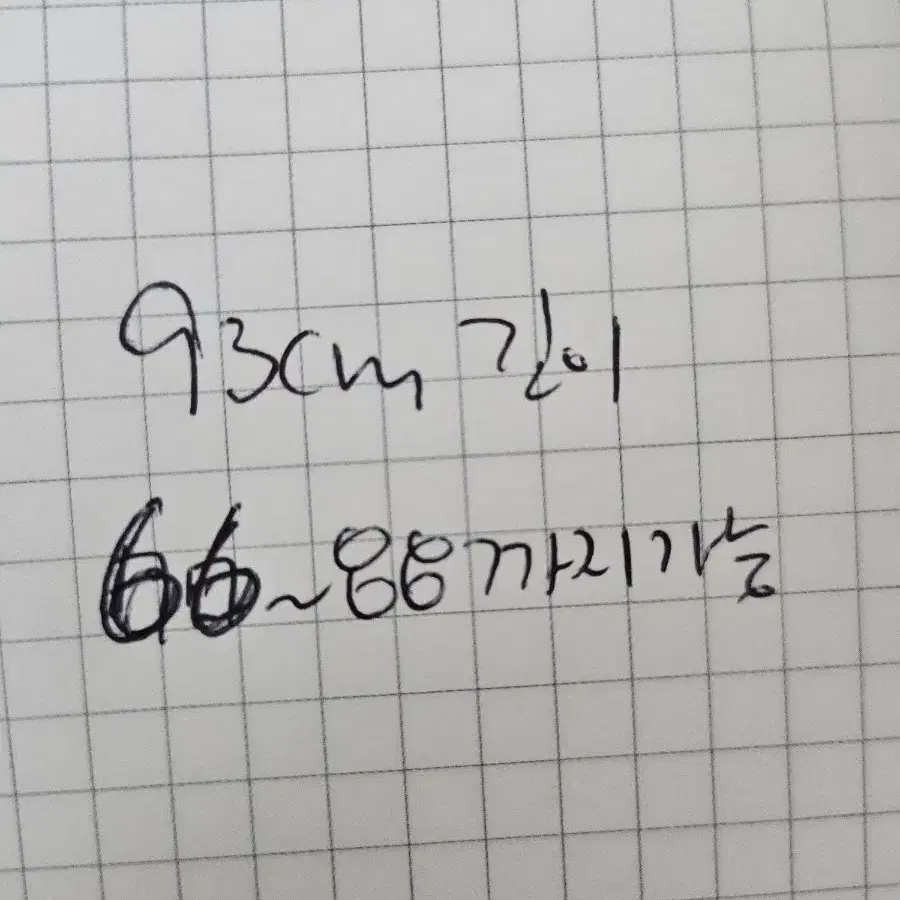 93cm 길이
66~88까지가능